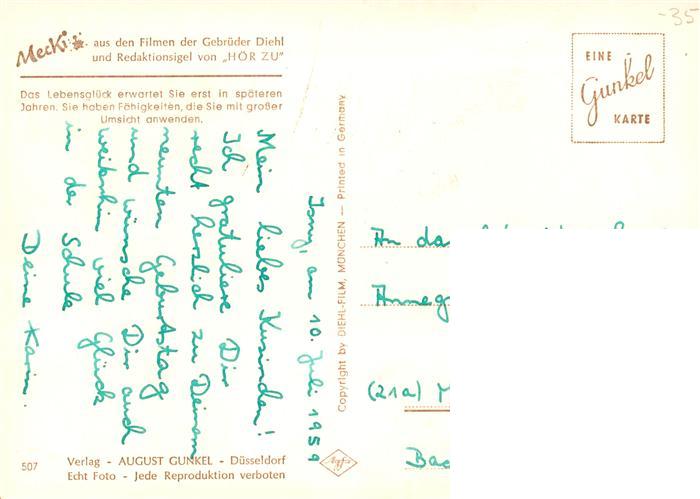 Mecki aus den Filmen der Gebrüder Diehl
und Redaktionsigel von „HÖR ZU"
Das Lebensglück erwartet Sie erst in späteren
Jahren. Sie haben Fähigkeiten, die Sie mit großer
Umsicht anwenden.
Isny, am 10. Juli 1959
Mein liebes Kusinchen!
Ich gratuliere Dir
recht herzlich zu Deinem
neunten Geburtstag
und wünsche Dir auch
weiterhin viel Glück
in der Schule
Deine Karin.
507
Verlag - AUGUST GUNKEL - Düsseldorf
Echt Foto - Jede Reproduktion verboten
Copyright by DIEHL-FILM, MÜNCHEN — Printed in Germany
Agfa
-35
EINE
Gunkel
KARTE
An da
Anneg
(21a) M
Bad